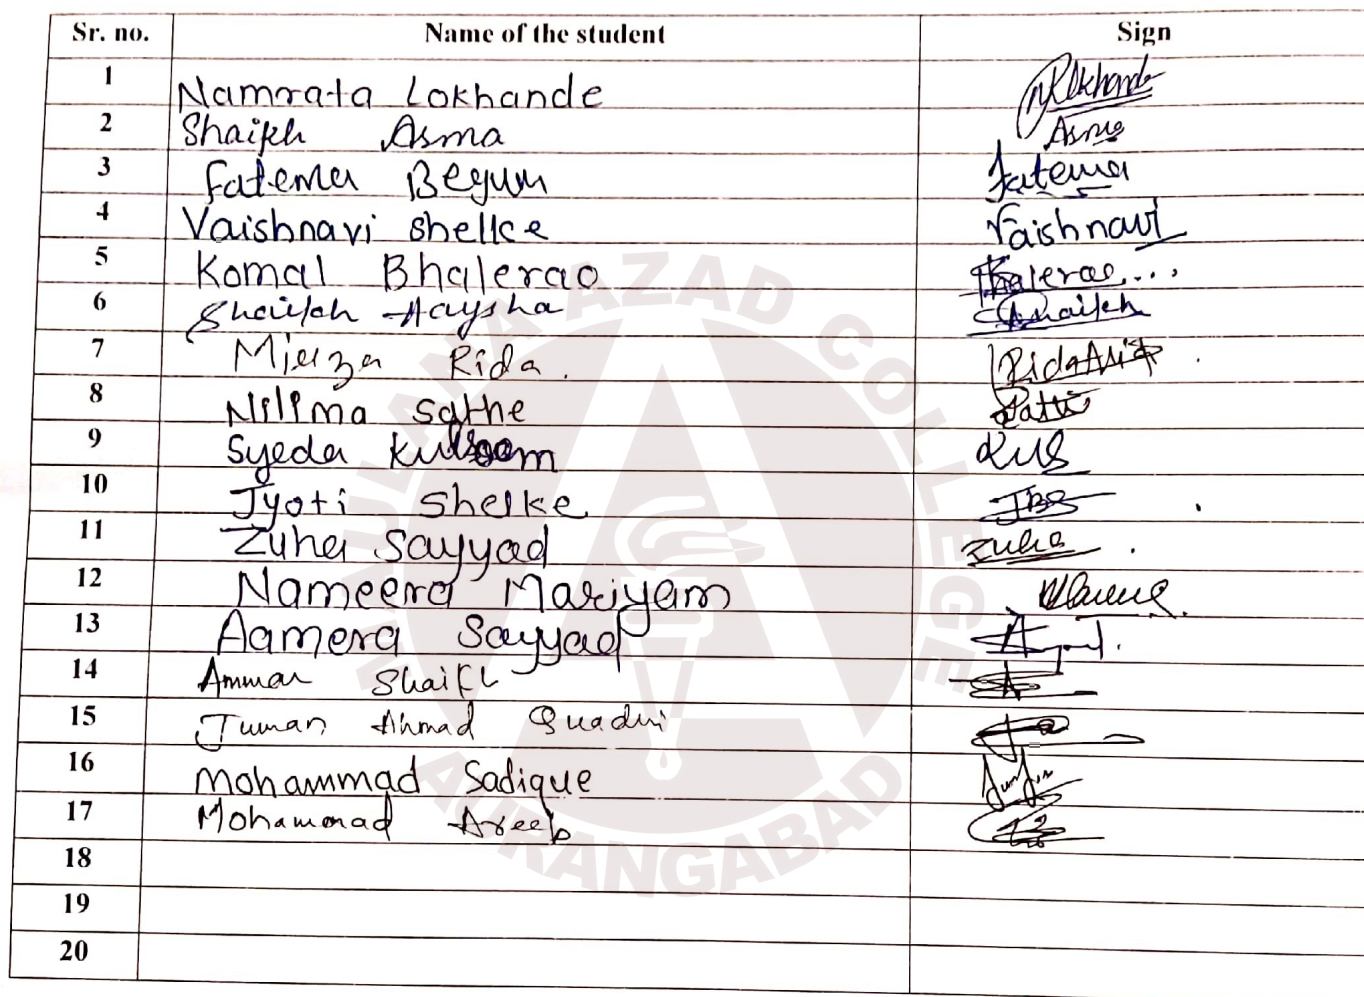 Sr. no. Name of the student Sign
1 Namrata Lokhande NRLokhande
2 Shaikh Asma Asma
3 Fatema Begum Fatema
4 Vaishnavi Shelke Vaishnavi
5 Komal Bhalerao Bhalerao...
6 Shaikh Aaysha Shaikh
7 Mirza Rida.
8 Nilima Sathe
9 Syeda Kulsoom Kus
10 Jyoti Shelke JBS
11 Zuha Sayyad Zuha
12 Nameera Mariyam
13 Aamera Sayyad
14 Ammar Shaikh
15 Juman Ahmad Quadri
16 Mohammad Sadique
17 Mohammad Areeb
18
19
20
MAULANA AZAD COLLEGE
AURANGABAD